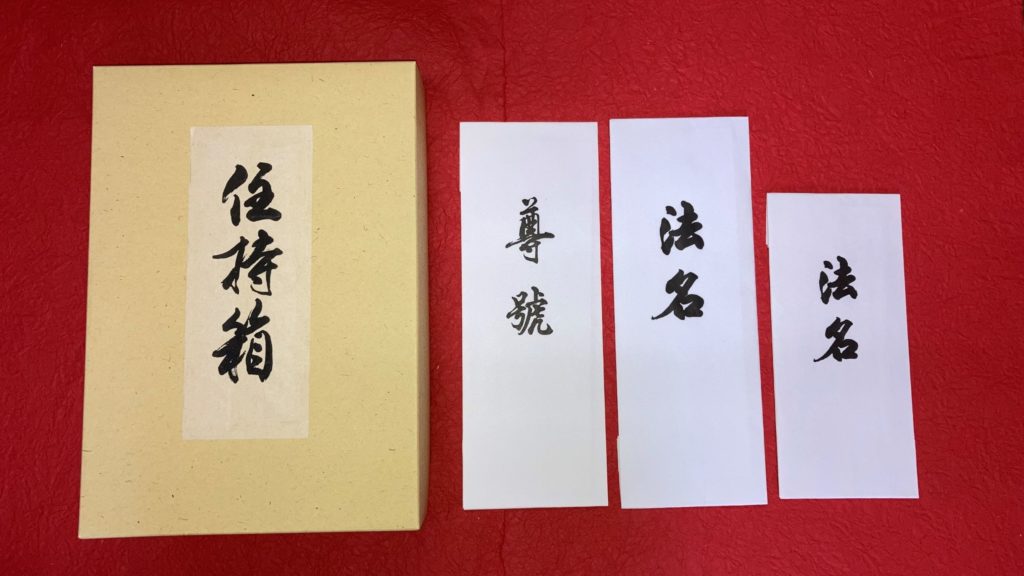 住持箱
尊號
法名
法名